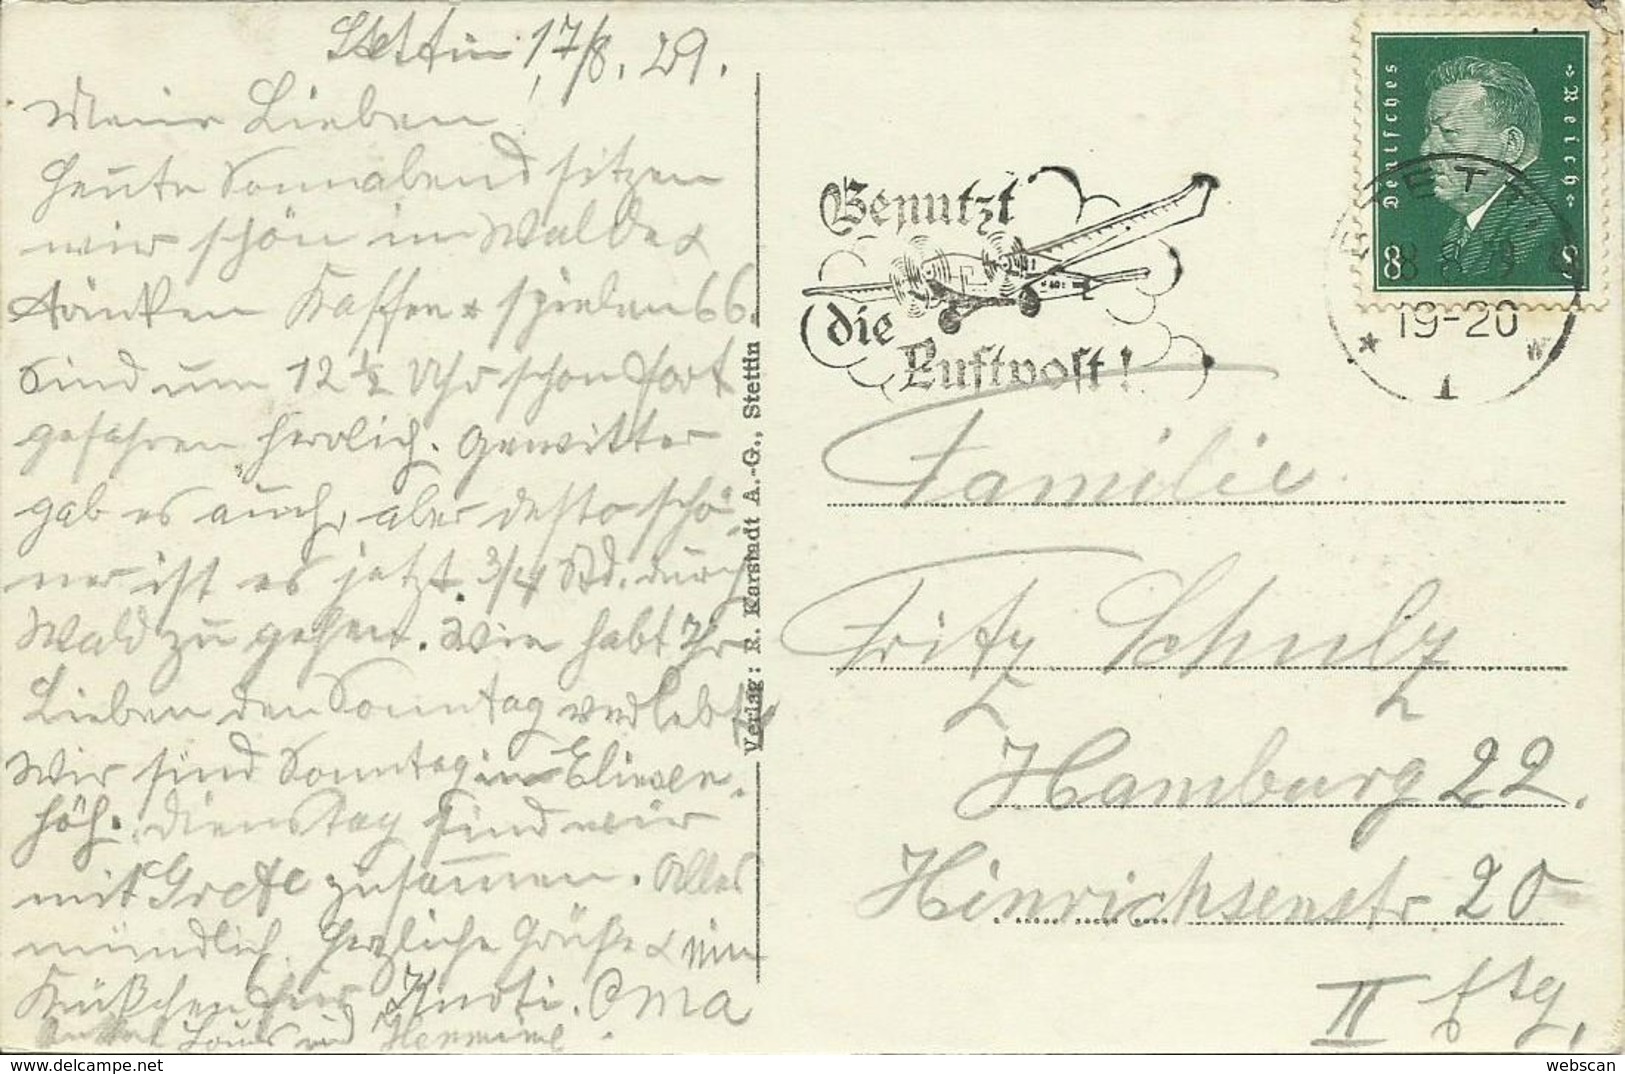 Stettin 17/8. 29.
Meine Lieben
Heute Sonnabend sitzen
wir schön im Walde &
trinken Kaffee & spielen 66.
Sind um 12 1/2 Uhr schon fort
gefahren herrlich. Gewitter
gab es auch, aber desto schö-
ner ist es jetzt. 3/4 Std. durch
Wald zu gehen. Wie habt Ihr
Lieben den Sonntag verlebt?
Wir sind Sonntag in
höh. Dienstag sind wir
mit Grete zusammen. Alles
mündlich. Herzliche Grüße & ein
Küßchen für Oma
Louis und Hermine.
Verlag: R. Karstadt A.-G., Stettin
Benutzt
die
Luftpost!
Deutsches Reich
8 8
STETTIN
18 8 29
19-20
* 1 *
Familie
Fritz Schulz
Hamburg 22.
Hinrichsenstr 20
II Etg.
webscan